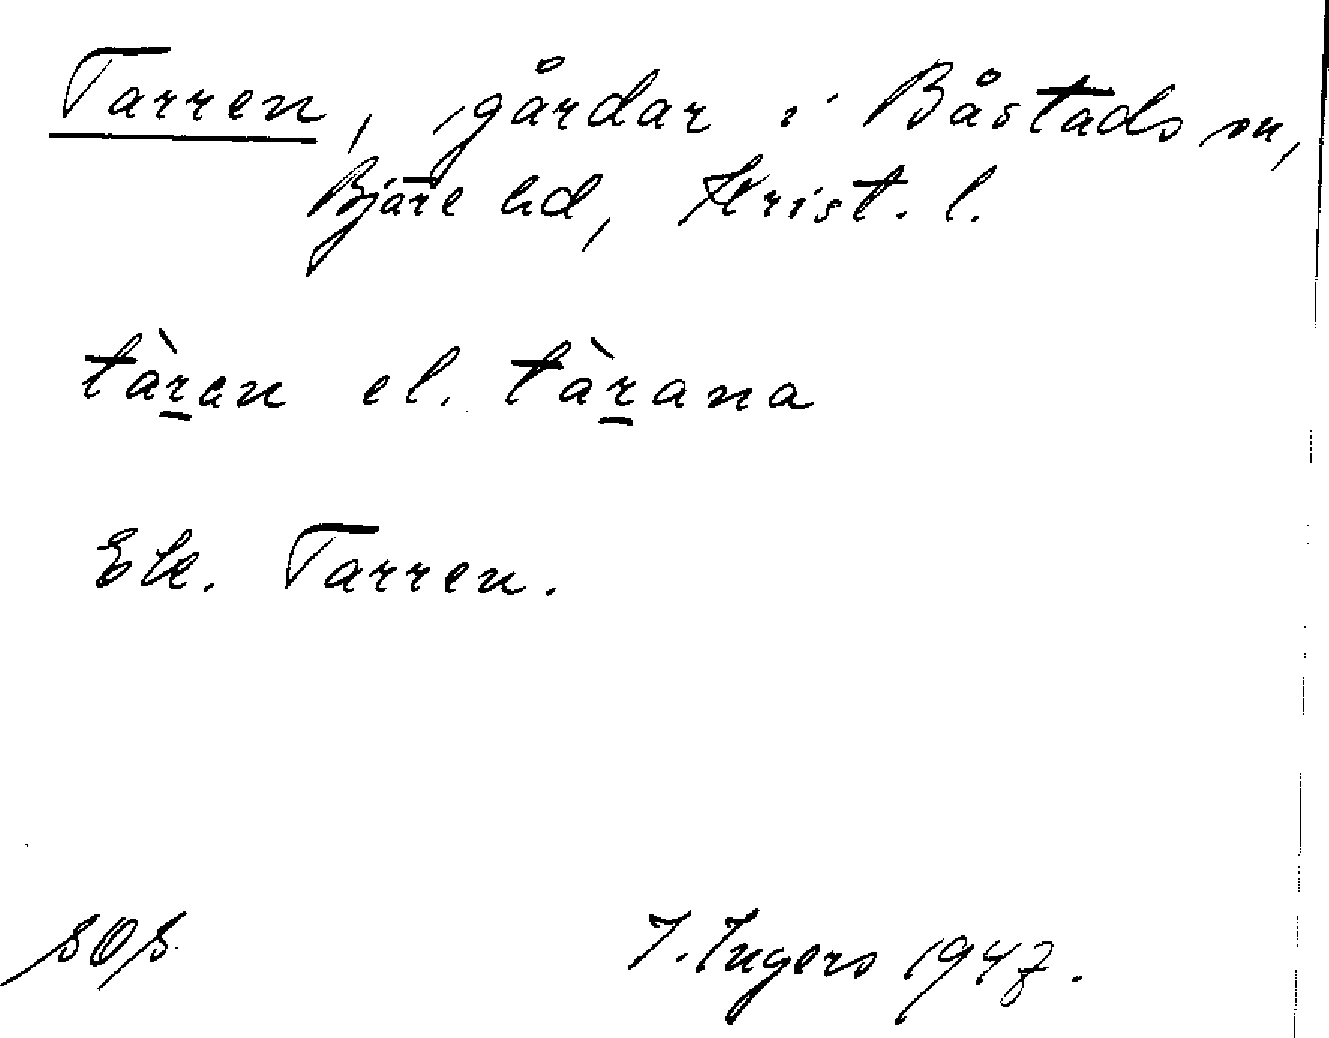 Tarren, gårdar i Båstads sn,
Bjäre hd, Krist. l.
tàr̲en el. tàr̲ana
Ek. Tarren.
I. Ingers 1947.